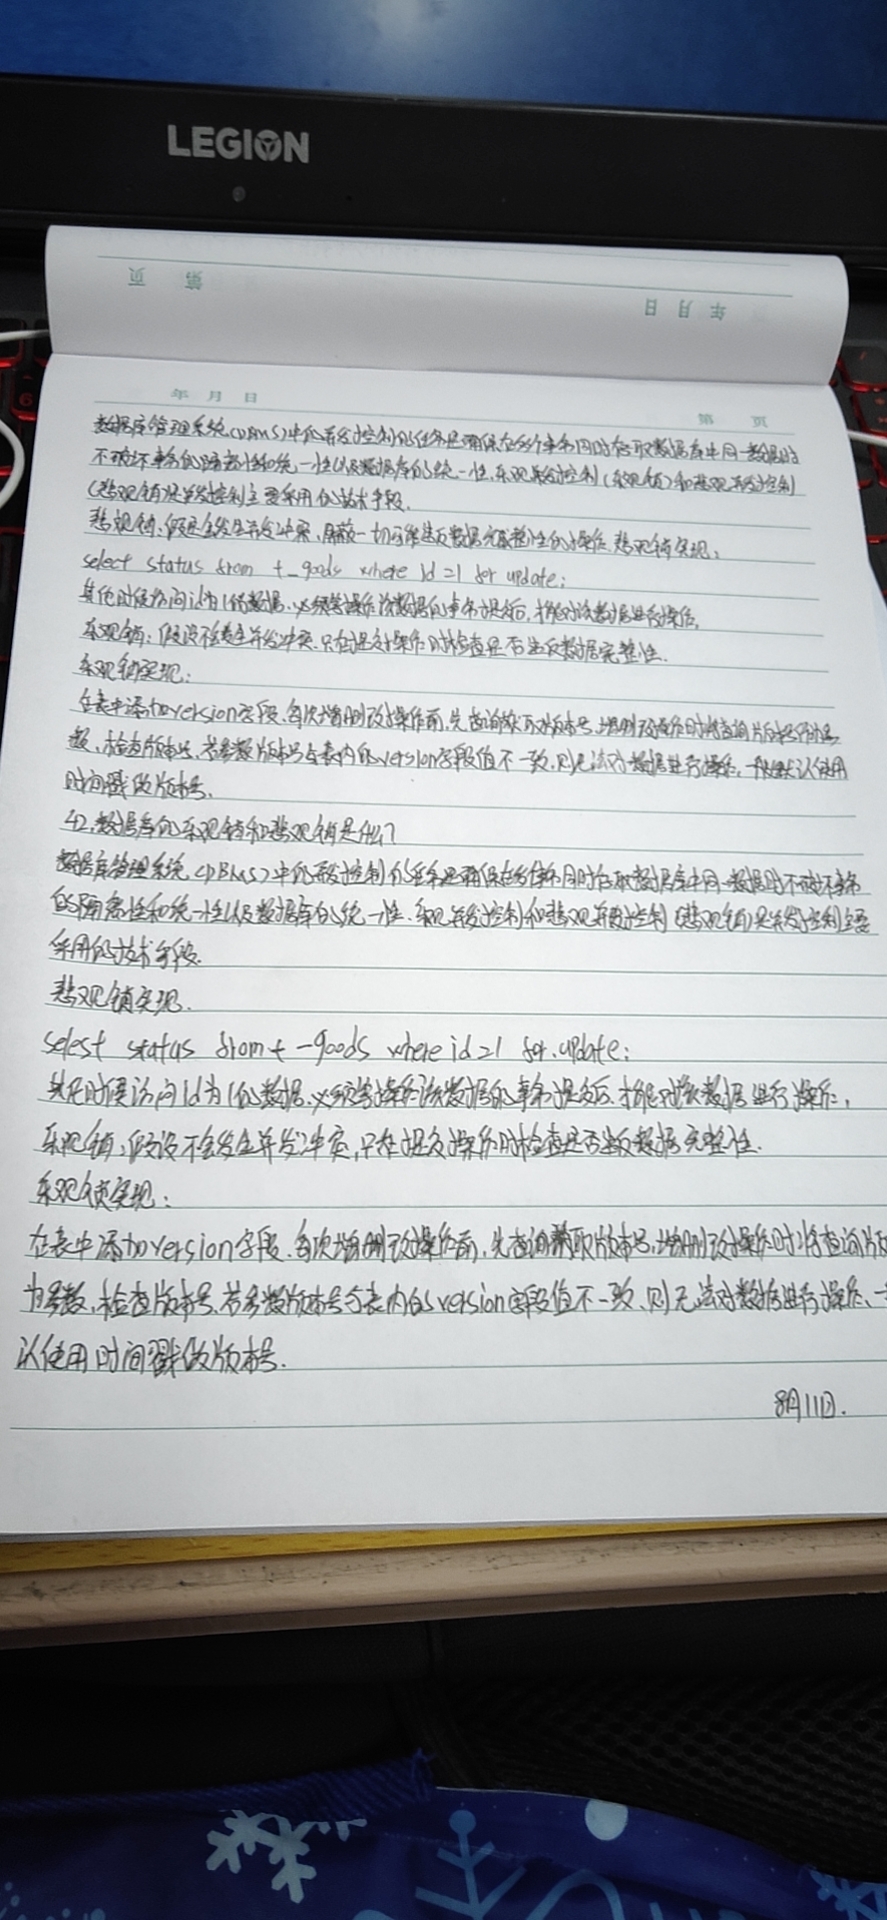 LEGION
第 页
年 月 日
年 月 日
第 页
数据库管理系统(DBMS)中的并发控制的任务是确保在多个事务同时存取数据库中同一数据时
不破坏事务的隔离性和统一性以及数据库的统一性.乐观并发控制(乐观锁)和悲观并发控制
(悲观锁)是并发控制主要采用的技术手段.
悲观锁:假定会发生并发冲突,屏蔽一切可能违反数据完整性的操作.悲观锁实现:
select status from t_goods where id=1 for update;
其他时候访问id为1的数据.必须等操作该数据的事务提交后,才能对该数据进行操作.
乐观锁:假设不会发生并发冲突.只在提交操作时检查是否违反数据完整性.
乐观锁实现:
在表中添加version字段.每次增删改操作前,先查询获取版本号.增删改操作时将查询版本号作为参
数,检查版本号.若参数版本号与表内的version字段值不一致.则无法对数据进行操作.一般默认使用
时间戳做版本号.
42.数据库的乐观锁和悲观锁是什么?
数据库管理系统(DBMS)中的并发控制的任务是确保在多个事务同时存取数据库中同一数据时不破坏事务
的隔离性和统一性以及数据库的统一性.乐观并发控制和悲观并发控制(悲观锁)是并发控制主要
采用的技术手段.
悲观锁实现.
selest status from t-goods where id=1 for.update;
其他时候访问id为1的数据.必须等操作该数据的事务提交后.才能对该数据进行操作.
乐观锁:假设不会发生并发冲突,只在提交操作时检查是否违反数据完整性.
乐观锁实现:
在表中添加version字段.每次增删改操作前,先查询获取版本号,增删改操作时将查询版
为参数,检查版本号.若参数版本号与表内的version字段值不一致.则无法对数据进行操作.一
认使用时间戳做版本号.
8月11日.